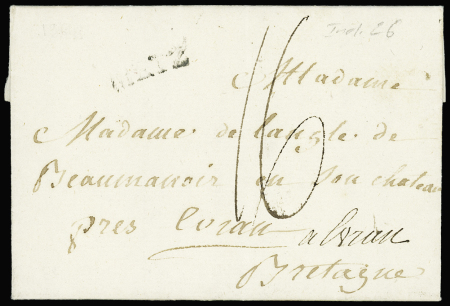 Indice 26
METZ
Madame
Madame de langle de
Beaumanoir en son chateau
pres Evran
a Evran
Bretagne
16